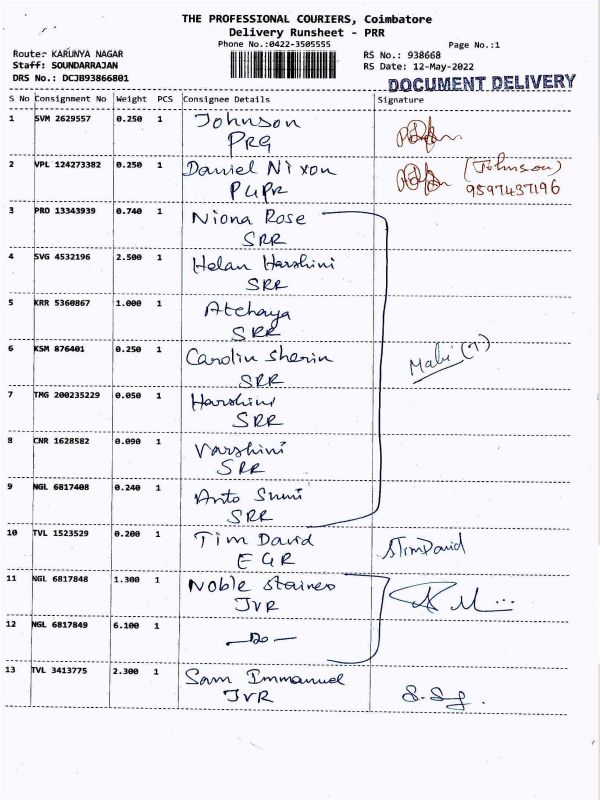 THE PROFESSIONAL COURIERS, Coimbatore
Delivery Runsheet - PRR
Phone No.:0422-3505555
Page No.:1
Route: KARUNYA NAGAR
RS No.: 938668
Staff: SOUNDARRAJAN
RS Date: 12-May-2022
DRS No.: DCJB93866801
DOCUMENT DELIVERY
S No Consignment No Weight PCS Consignee Details Signature
1 SVM 2629557 0.250 1 Johnson
PRG
2 VPL 124273382 0.250 1 Daniel Nixon (Johnson)
PGPR 9597437196
3 PRO 13343939 0.740 1 Niona Rose
SRR
4 SVG 4532196 2.500 1 Helan Harshini
SRR
5 KRR 5360867 1.000 1 Atchaya
SRR
6 KSM 876401 0.250 1 Carolin Sherin Mabi (7)
SRR
7 TMG 200235229 0.050 1 Harshini
SRR
8 CNR 1628582 0.090 1 Varshini
SRR
9 NGL 6817408 0.240 1 Anto Suni
SRR
10 TVL 1523529 0.200 1 Tim David STimDavid
EGR
11 NGL 6817848 1.300 1 Noble Staines
JVR
12 NGL 6817849 6.100 1 —Do—
13 TVL 3413775 2.300 1 Sam Immanuel
JVR